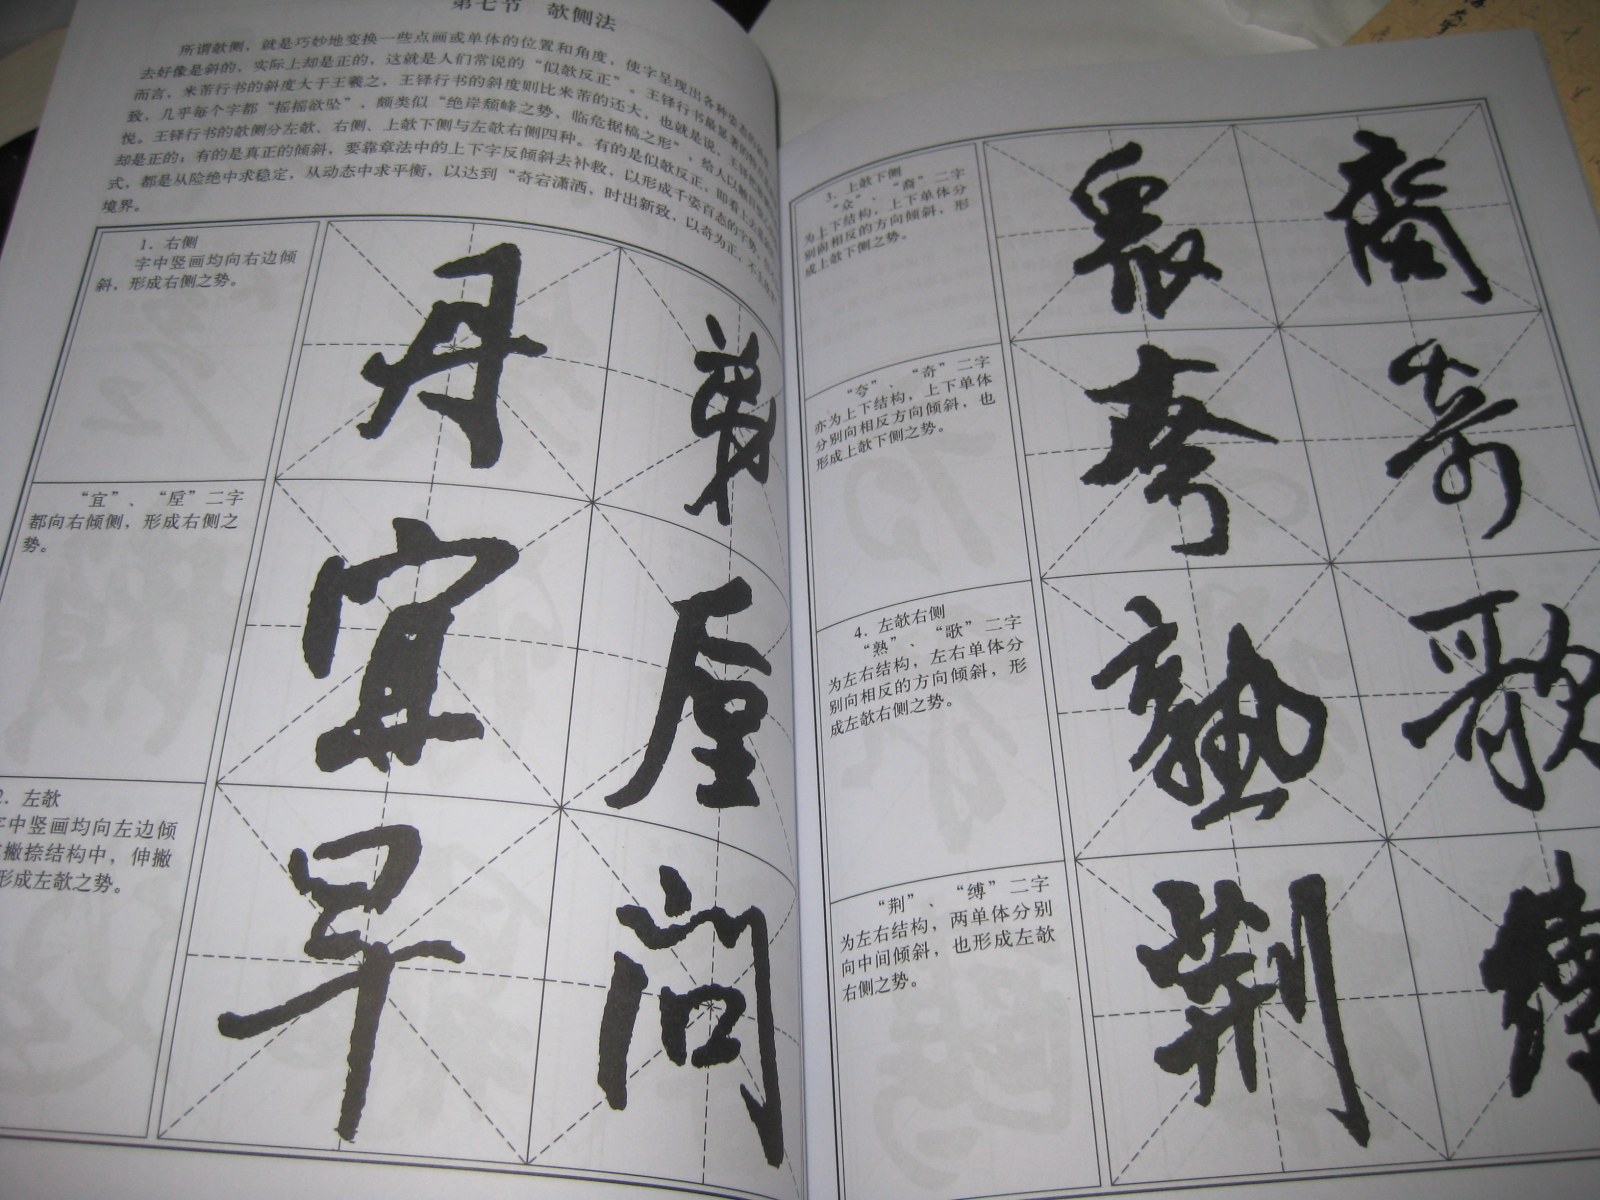 第七节　欹侧法
所谓欹侧，就是巧妙地变换一些点画或单体的位置和角度，使字呈现出各种姿态的
去好像是斜的，实际上却是正的，这就是人们常说的“似欹反正”。王铎行书最显著的特点
而言，米芾行书的斜度大于王羲之，王铎行书的斜度则比米芾的还大，也就是说，王铎
致，几乎每个字都“摇摇欲坠”、颇类似“绝岸颓峰之势，临危据槁之形”，给人以触目惊
悦。王铎行书的欹侧分左欹、右侧、上欹下侧与左欹右侧四种。有的是似欹反正，即看上去
却是正的；有的是真正的倾斜，要靠章法中的上下字反倾斜去补救，以形成千姿百态的字势。
式，都是从险绝中求稳定，从动态中求平衡，以达到“奇宕潇洒，时出新致，以奇为正，不
境界。
1．右侧
字中竖画均向右边倾
斜，形成右侧之势。
丹
弟
“宜”、“垕”二字
都向右倾侧，形成右侧之
势。
宜
垕
2．左欹
字中竖画均向左边倾
撇捺结构中，伸撇
形成左欹之势。
早
问
3．上欹下侧
“众”、“裔”二字
为上下结构，上下单体分
别向相反的方向倾斜，形
成上欹下侧之势。
衆
裔
“夸”、“奇”二字
亦为上下结构，上下单体
分别向相反方向倾斜，也
形成上欹下侧之势。
夸
奇
4．左欹右侧
“熟”、“歌”二字
为左右结构，左右单体分
别向相反的方向倾斜，形
成左欹右侧之势。
熟
歌
“荆”、“缚”二字
为左右结构，两单体分别
向中间倾斜，也形成左欹
右侧之势。
荆
缚